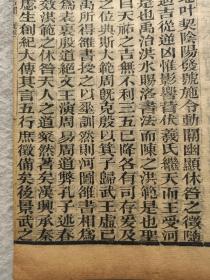 地叶契陰陽發號施令動關幽顯休咎之徵隨
迪吉從逆凶惟影響昔伏羲氏繼天而王受河
是也禹治洪水賜洛書法而陳之洪範是也聖
曰天祐之吉無不利三五已降各有司存爰及
之位典斯大範周旣克殷以箕子歸武王虛
禹所得雒書授之以垂訓然則河圖雒書相爲
爲表裏殷道絕文王演周易周道弊孔子述春
效洪範之休咎天人之道粲然著矣漢興承秦
慮生創紀大傳其言五行庶徵備矣後景武之